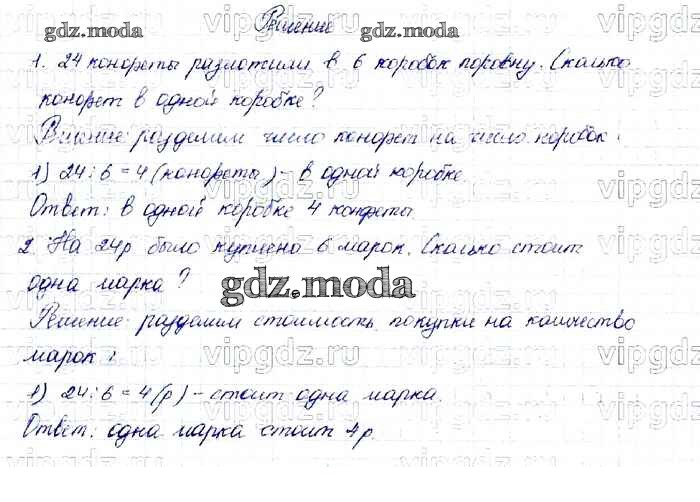 Решение
1. 24 конфеты разложили в 6 коробок поровну. Сколько
конфет в одной коробке?
Решение: разделим число конфет на число коробок:
1) 24:6=4(конфеты) - в одной коробке.
Ответ: в одной коробке 4 конфеты.
2. На 24р было куплено 6 марок. Сколько стоит
одна марка?
Решение: разделим стоимость покупки на количество
марок:
1) 24:6=4(р) - стоит одна марка.
Ответ: одна марка стоит 4р.
gdz.moda
gdz.moda
gdz.moda
vipgdz.ru